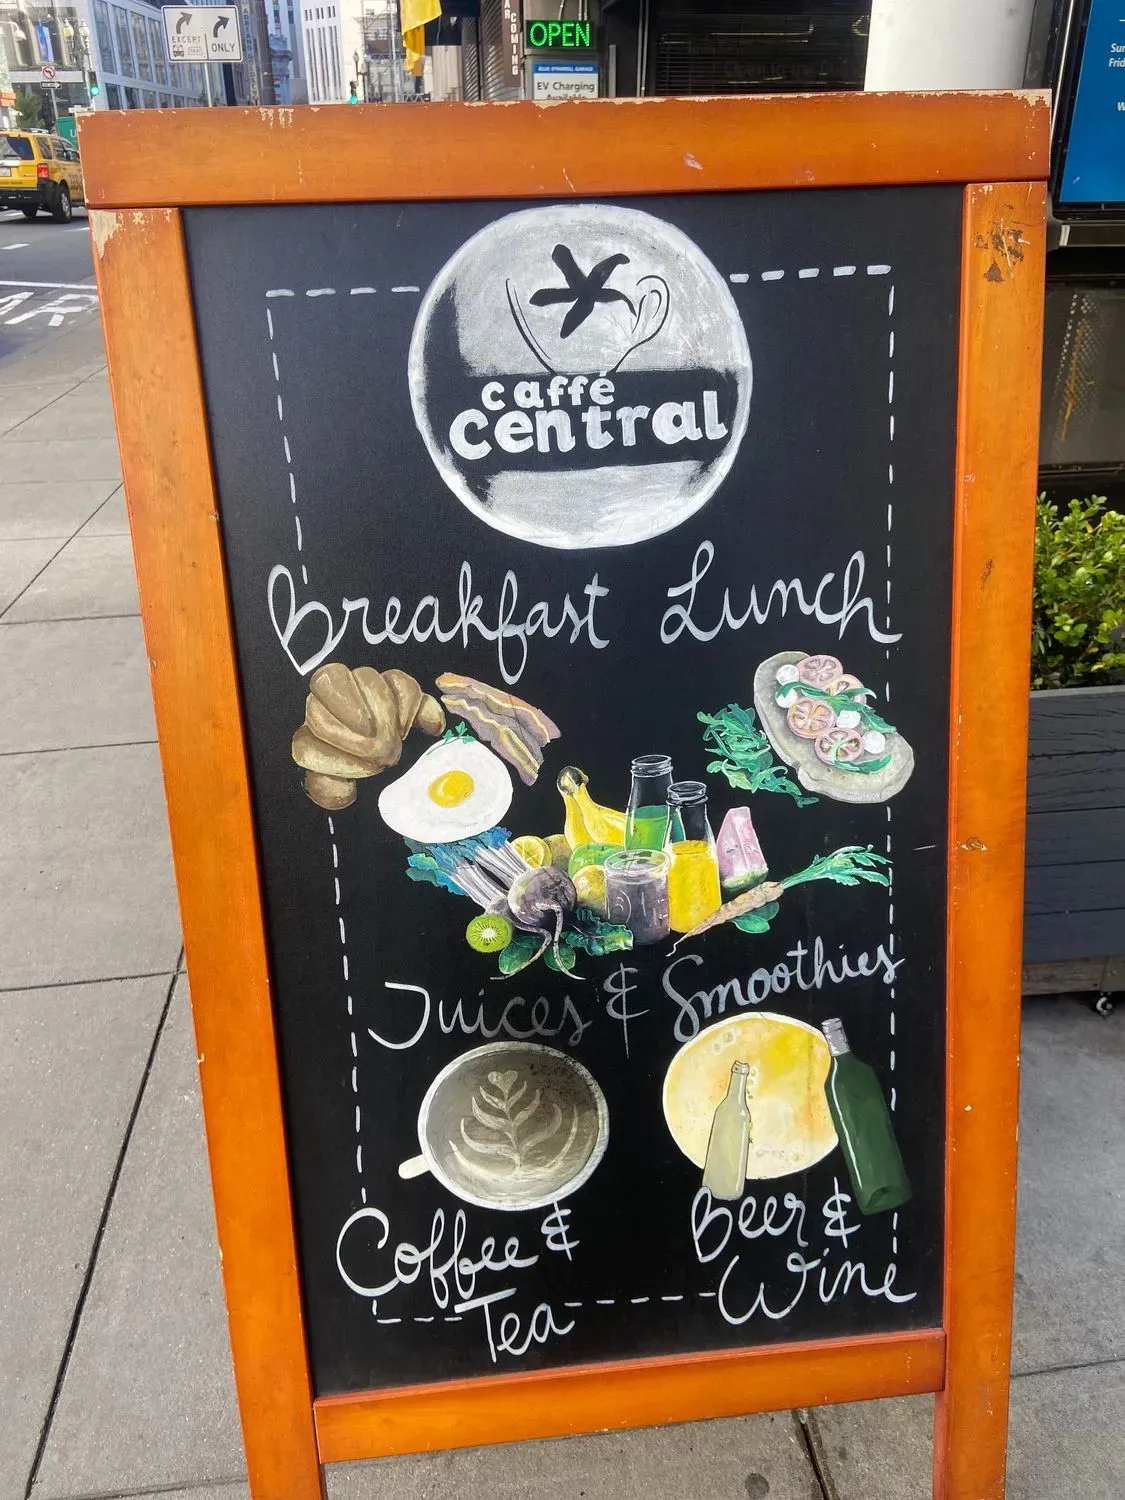 EXCEPT
ONLY
OPEN
EV Charging
Available
COMING
caffé
central
Breakfast Lunch
Juices & Smoothies
Coffee &
Tea
Beer &
Wine